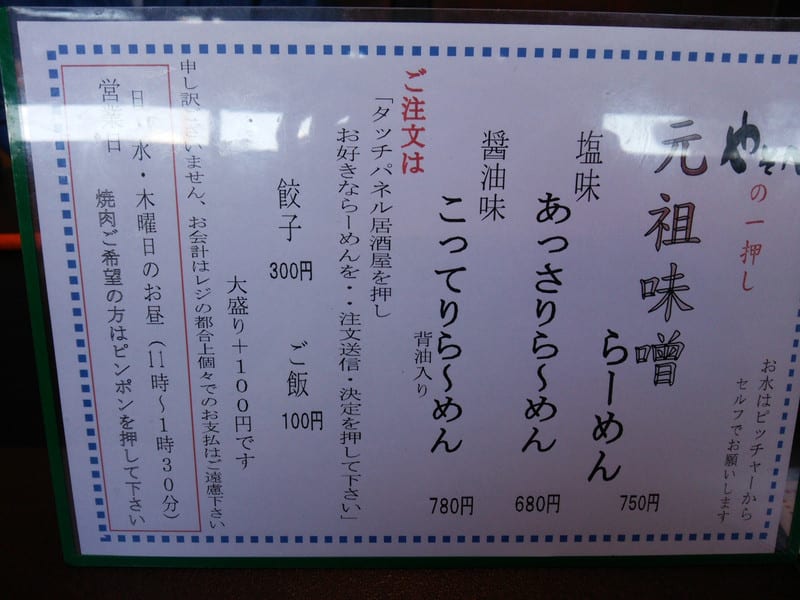 の一押し
お水はピッチャーから
セルフでお願いします
元祖味噌
らーめん
750円
塩味
あっさりら〜めん
680円
醤油味
こってりら〜めん
背油入り
780円
ご注文は
「タッチパネル居酒屋を押し
お好きならーめんを・・注文送信・決定を押して下さい」
餃子
300円
ご飯
100円
大盛り+100円です
申し訳ございません、お会計はレジの都合上個々でのお支払はご遠慮下さい
営業日
日・水・木曜日のお昼(11時〜1時30分)
焼肉ご希望の方はピンポンを押して下さい